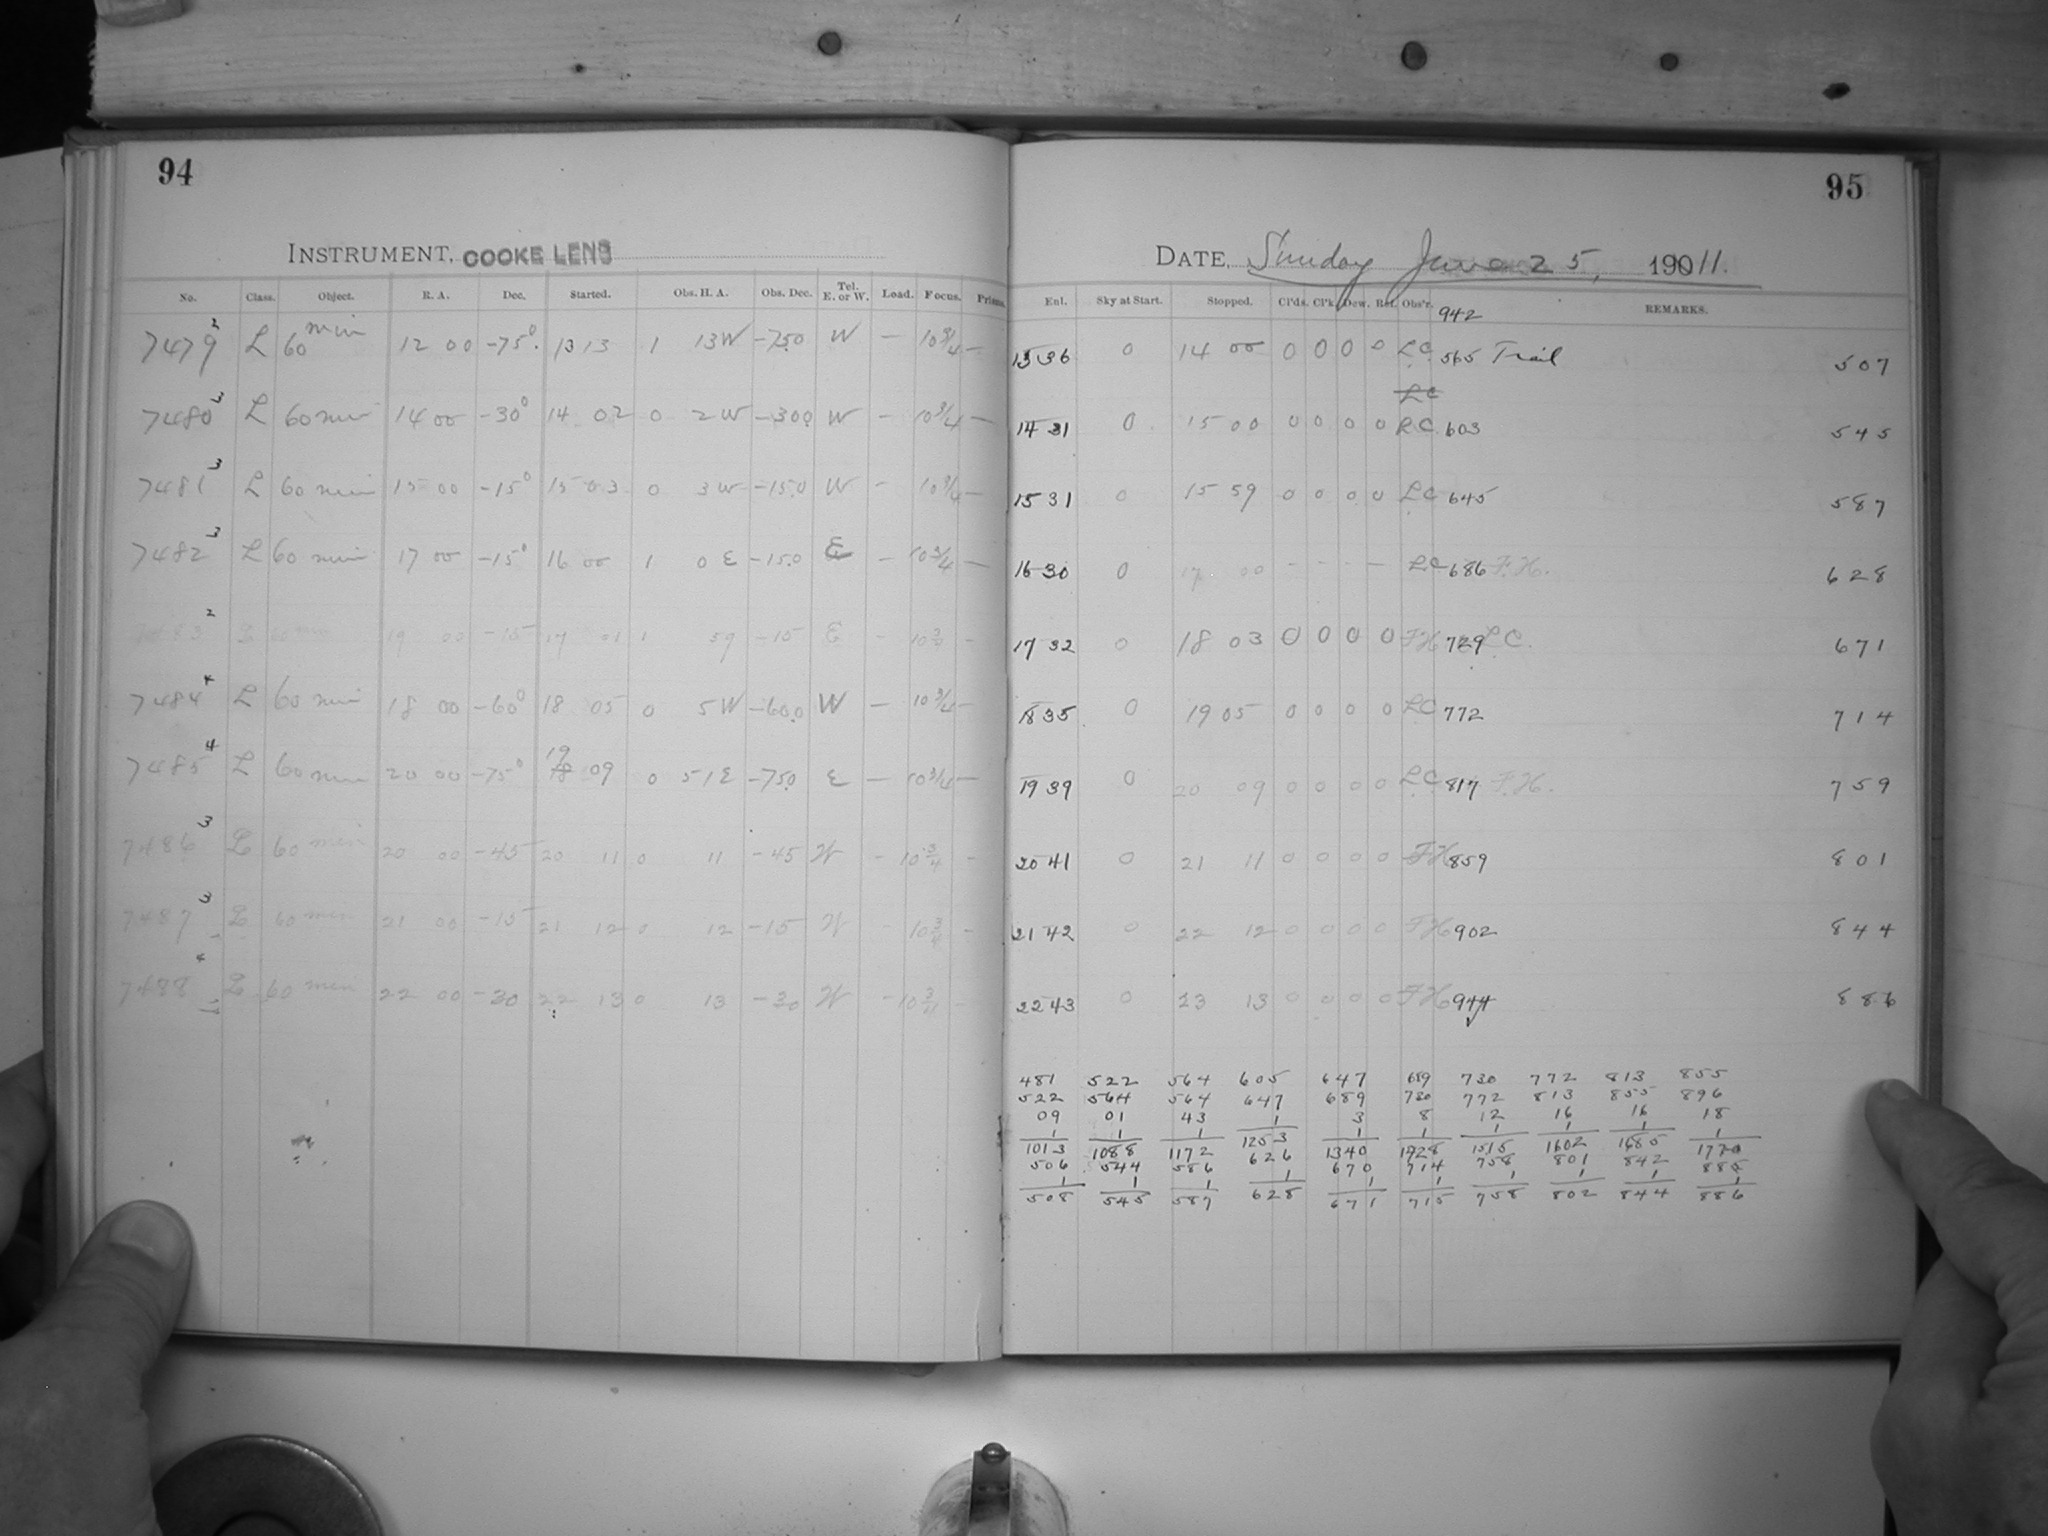 94
INSTRUMENT, COOKE LENS
No. Class. Object. R. A. Dec. Started. Obs. H. A. Obs. Dec. Tel. E. or W. Load. Focus. Prisms.
7479 2 L 60 min 12 00 -75° 13 13 1 13 W -75.0 W — 10 3/4 —
7480 3 L 60 min 14 00 -30° 14 02 0 2 W -30.0 W — 10 3/4 —
7481 3 L 60 min 15 00 -15° 15 03 0 3 W -15.0 W - 10 3/4 —
7482 3 L 60 min 17 00 -15° 16 00 1 0 E -15.0 E — 10 3/4 —
7483 2 L 60 min 19 00 -15 17 01 1 59 -15 E - 10 3/4 -
7484 4 L 60 min 18 00 -60° 18 05 0 5 W -60.0 W — 10 3/4 —
7485 4 L 60 min 20 00 -75° 18 19 09 0 51 E -75.0 E — 10 3/4 —
7486 3 L 60 min 20 00 -45 20 11 0 11 -45 W - 10 3/4 -
7487 3 L 60 min 21 00 -15 21 12 0 12 -15 W - 10 3/4 -
7488 4 L 60 min 22 00 -30 22 13 0 13 -30 W - 10 3/4 -
95
DATE, Sunday June 25, 1911.
Enl. Sky at Start. Stopped. Cl'ds. Cl'k. Dew. Ret. Obs'r. REMARKS.
942
13 36 0 14 00 0 0 0 0 L.C. 565 Trail 507
LC
14 31 0 15 00 0 0 0 0 R.C. 603 545
15 31 0 15 59 0 0 0 0 L.C 645 587
16 30 0 17 00 - - - - L.C 686 F.H. 628
17 32 0 18 03 0 0 0 0 F.H 729 L.C. 671
18 35 0 19 05 0 0 0 0 L.C 772 714
19 39 0 20 09 0 0 0 0 L.C. 817 F.H. 759
20 41 0 21 11 0 0 0 0 F.H 859 801
21 42 0 22 12 0 0 0 0 F.H. 902 844
22 43 0 23 13 0 0 0 0 F.H. 944 886
481 522 564 605 647 689 730 772 813 855
522 564 564 647 689 730 772 813 855 896
09 01 43 1 3 8 12 16 16 18
1 1 1 1 1 1 1 1 1
1013 1088 1172 1253 1340 1428 1515 1602 1685 1770
506 544 586 626 670 714 758 801 842 885
1 1 1 1 1 1 1 1 1 1
508 545 587 628 671 715 758 802 844 886